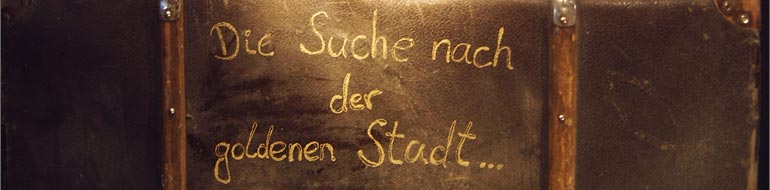 Die Suche nach
der
goldenen Stadt...